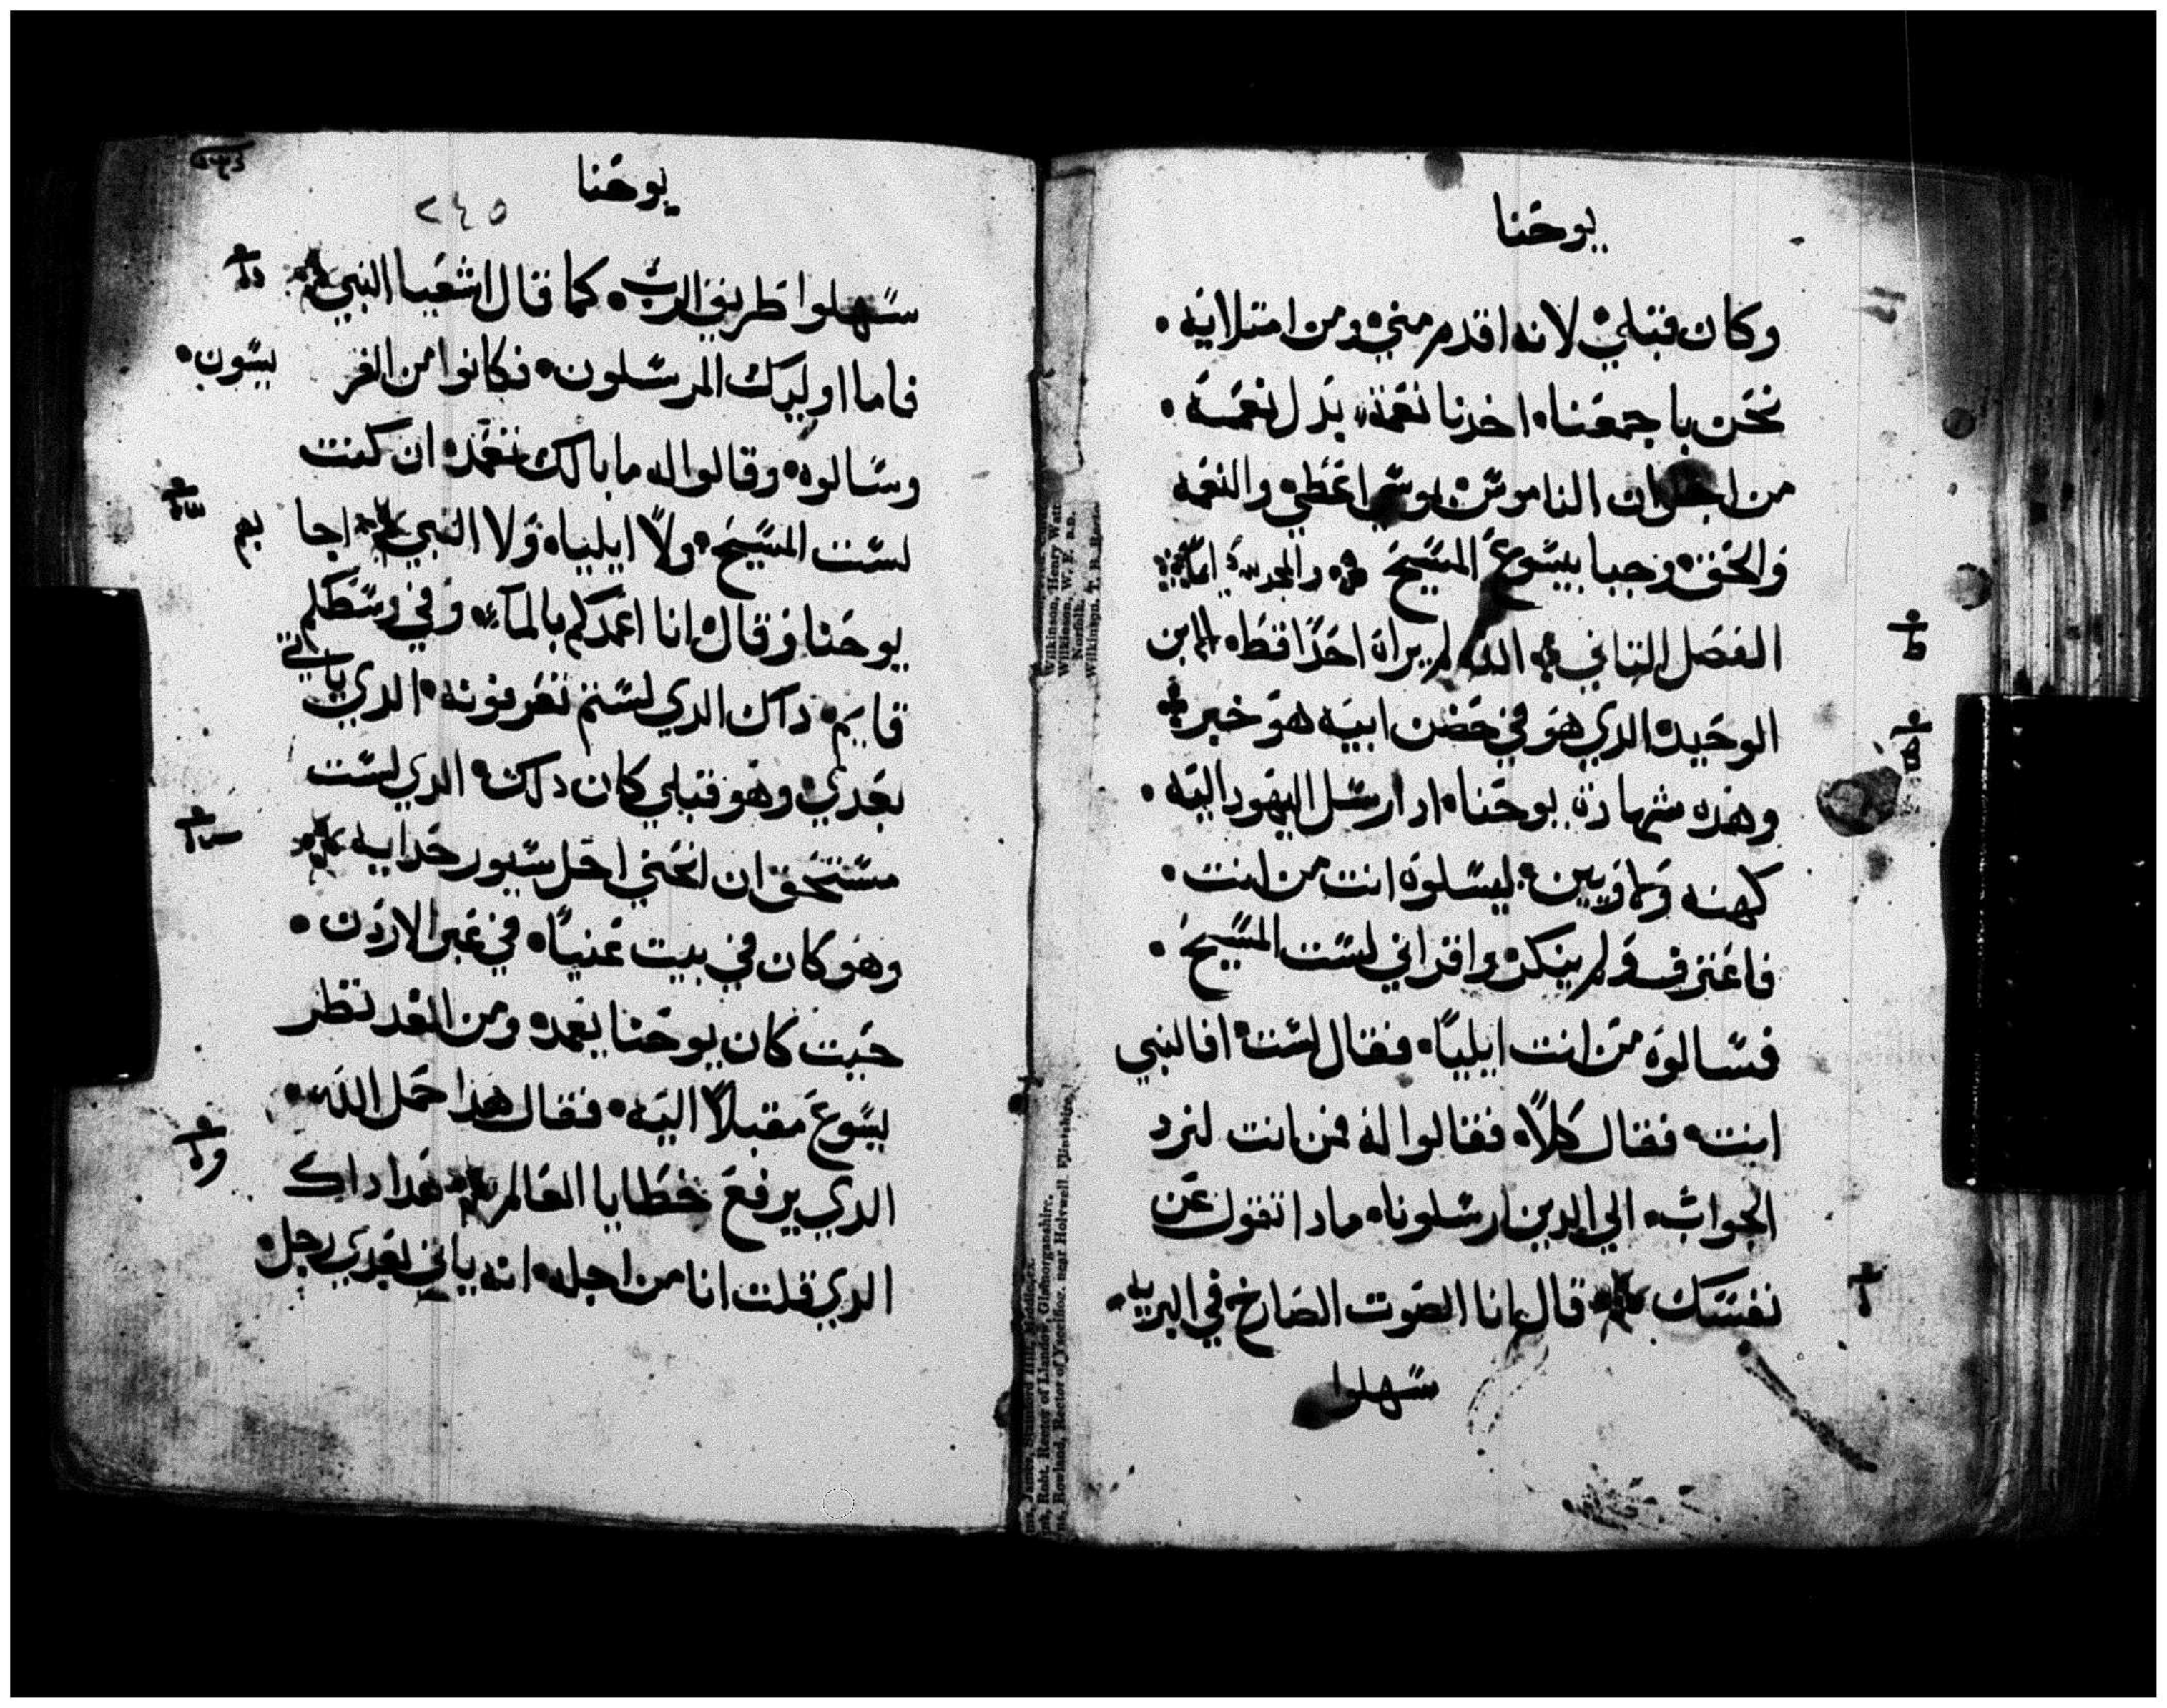 يوحنا
وكان قبلي لانه اقدم مني ومن امتلايه
نحن باجمعنا اخدنا نعمة بدل نعمة
من اجل ان الناموس بموسي اعطي والنعمه
والحق وجبا بيسوع المسيح والمجد
الفصل التاني الله لم يراه احدا قط الابن
الوحيد الدي هو في حضن ابيه هو خبر
وهده شهادة يوحنا اد ارسل اليهود اليه
كهنه ولاويين ليسلوه انت من انت
فاعترف ولم ينكر واقر اني لست المسيح
فسالوه من انت ايليا فقال لست افالنبي
انت فقال كلا فقالوا له فمن انت لنرد
الجواب الي الدين ارسلونا مادا تقول عن
نفسك قال انا الصوت الصارخ في البريه
سهلوا
يوحنا
٢٤٥
سهلوا طريق الرب كما قال اشعيا النبي
فاما اوليك المرسلون فكانوا من الفر يسون
وسالوه وقالوا له ما بالك تعمد ان كنت
لست المسيح ولا ايليا ولا النبي اجا بهم
يوحنا وقال انا اعمدكم بالماء وفي وسطكم
قايم داك الدي لستم تعرفونه الدي ياتي
بعدي وهو قبلي كان دلك الدي لست
مستحق ان انحني احل سيور حدايه
وهو كان في بيت عنيا في عبر الاردن
حيت كان يوحنا يعمد ومن الغد نظر
يسوع مقبلا اليه فقال هدا حمل الله
الدي يرفع خطايا العالم هدا داك
الدي قلت انا من اجله انه ياتي بعدي رجل
Wilkinson, Henry Wat
Wilkinson, W. F.
Norfolk.
Wilkinson, T. B.
Robt. Rector of Llandow, Glamorganshire.
Rowland, Rector of Ysceifiog, near Holywell, Flintshire.